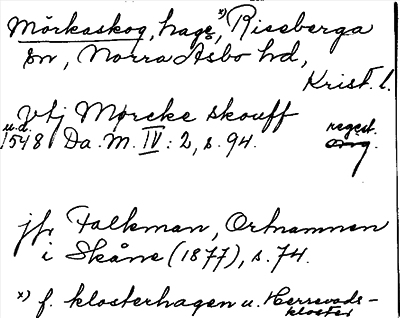 Mörkaskog, hage, x) Rissberga
sn, Norra Åsbo hd,
Krist. l.
Vtj Mørcke skouff
u.d.
1548 Da. M. IV: 2, s. 94.
regest.
orig.
jfr Falkman, Ortnamnen
i Skåne (1877), s. 74.
x) f. klosterhagen u. Herrevads-
kloster